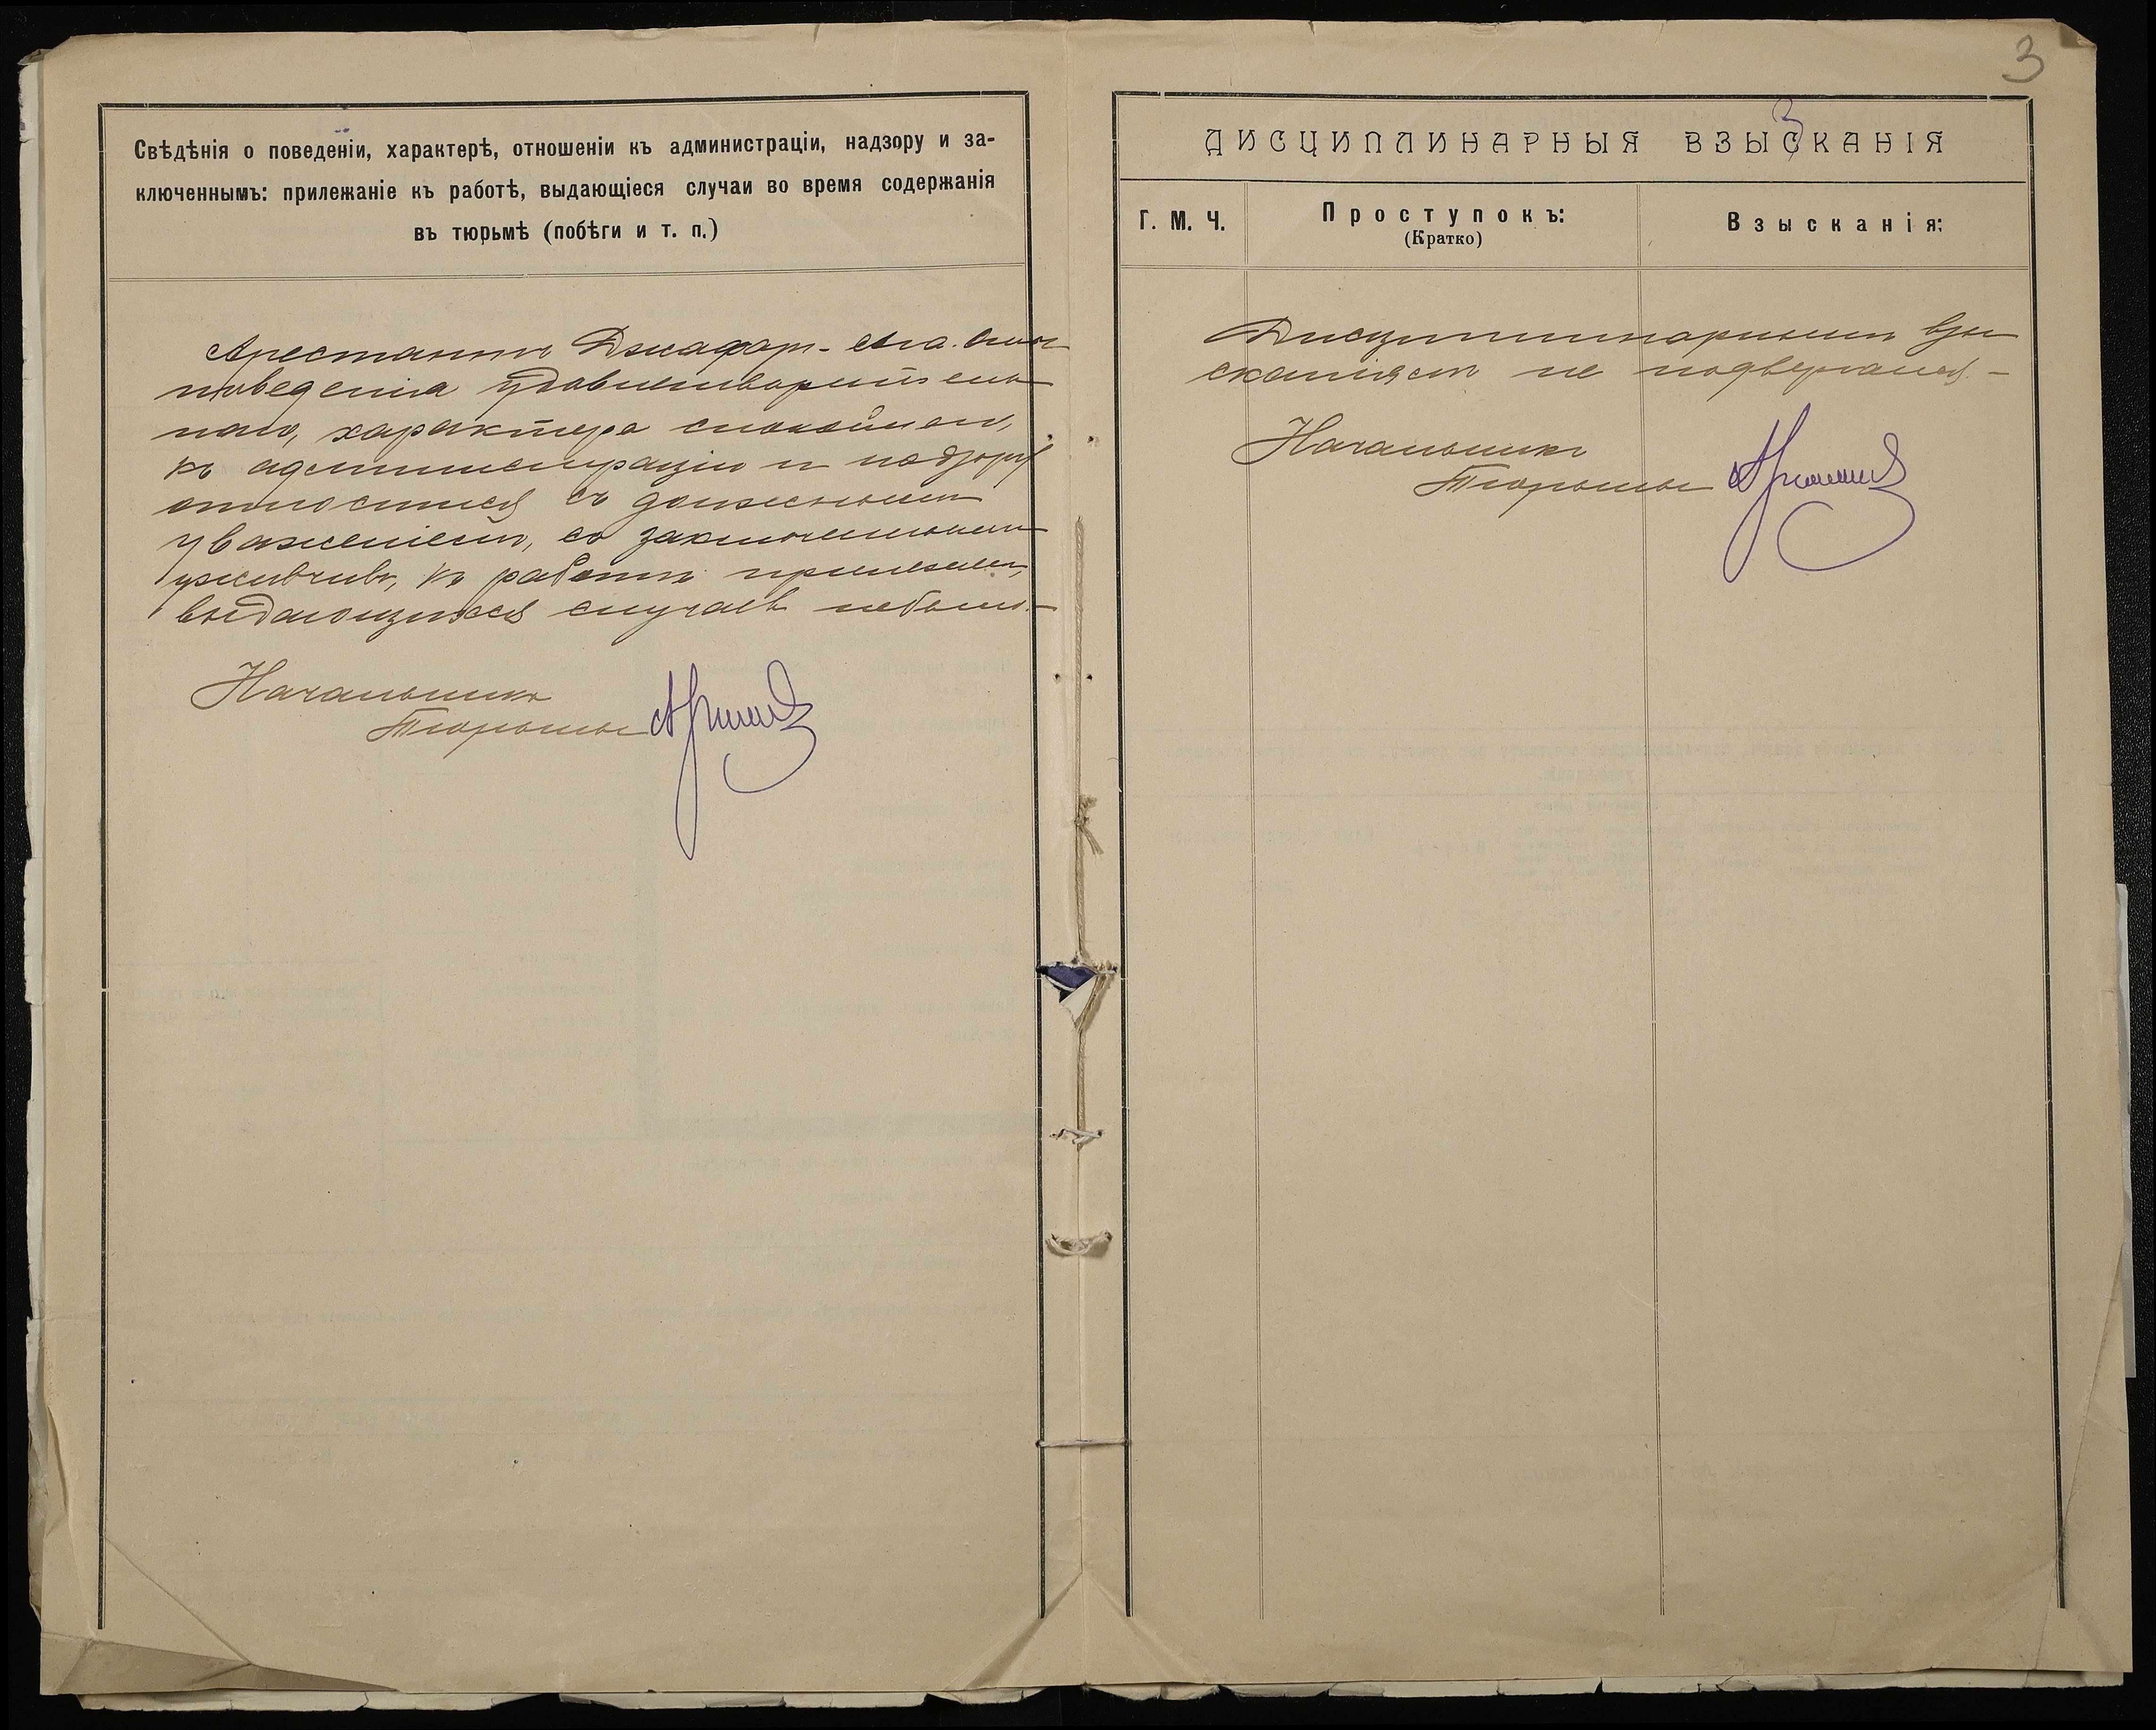 3
Свѣдѣнія о поведеніи, характерѣ, отношеніи къ администраціи, надзору и за-
ключеннымъ: прилежаніе къ работѣ, выдающіеся случаи во время содержанія
въ тюрьмѣ (побѣги и т. п.)
Арестантъ Джафаръ-Ага
поведенія удовлетворитель
наго, характера спокойнаго,
къ администраціи и надзору
относится съ должнымъ
уваженіемъ, съ заключенными
уживчивъ, къ работѣ прилеженъ,
выдающихся случаевъ небыло.-
Начальникъ
Тюрьмы
3
ДИСЦИПЛИНАРНЫЯ ВЗЫСКАНІЯ
Г. М. Ч.
Проступокъ:
(Кратко)
Взысканія:
Дисциплинарнымъ взы
сканіямъ не подвергался.-
Начальникъ
Тюрьмы